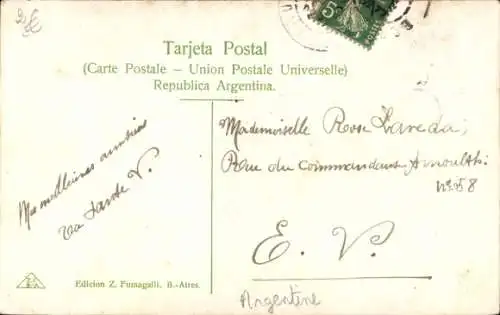 5
Tarjeta Postal
(Carte Postale – Union Postale Universelle)
Republica Argentina.
Mademoiselle Rose
Rue du Commandant Arnould
Nº 58
E. V.
Mes meilleures amitiés
V.
Edicion Z. Fumagalli. B.-Aires.
Argentine